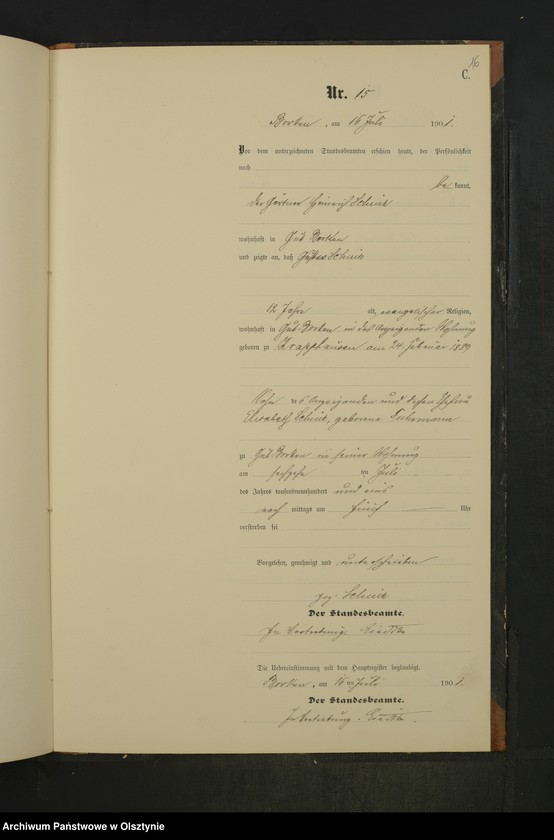 16
C.
Nr. 15
Borken, am 16 Juli 1901.
Vor dem unterzeichneten Standesbeamten erschien heute, der Persönlichkeit
nach
be kannt,
der Gärtner Heinrich
wohnhaft in Gut Borken
und zeigte an, daß
12 Jahre alt, evangelischer Religion,
wohnhaft in Gut Borken in des Anzeigenden Wohnung
geboren zu am 24. Februar 1889
Sohn des Anzeigenden und dessen Ehefrau
Elisabeth geborene
zu Gut Borken in seiner Wohnung
am ten Juli
des Jahres tausendneunhundert und eins
nach mittags um fünf Uhr
verstorben sei
Vorgelesen, genehmigt und unterschrieben
gez.
Der Standesbeamte.
In Vertretung.
Die Uebereinstimmung mit dem Hauptregister beglaubigt.
Borken, am 16ten Juli 1901.
Der Standesbeamte.
In Vertretung.
Archiwum Państwowe w Olsztynie